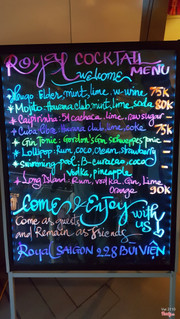 Royal COCKTAIL
welcome MENU
Hugo: Elder, mint, lime, w-wine 75K
* Mojito: Havana club, mint, lime, soda 80K
* Caipirinha: 51 cachaca, lime, raw sugar -
* Cuba Libre: Havana club, lime, soda 75K
* Gin Tonic: Gordon's gin, schweppes tonic -
* Lollipop: Rum, coco, cream, strawberry
* Swimming-pool: B-curacao, coco
vodka, pineapple
* Long Island: Rum, vodka, Gin, Lime
orange 90K
Come & Enjoy
with us
Come as guests
and Remain as friends
Royal SAIGON 228 BUI VIEN